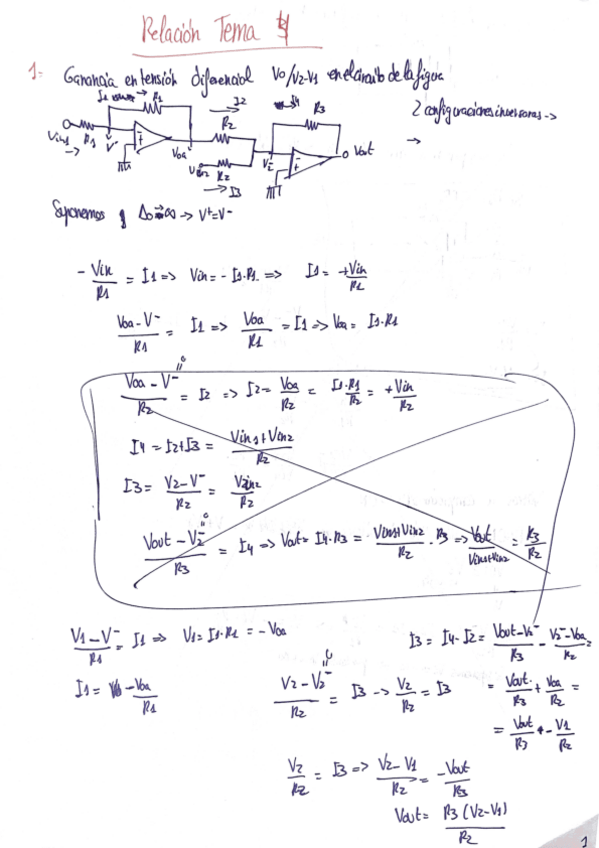 Relación Tema
1.- Ganancia en tensión diferencial Vo/V2-V1 en el circuito de la figura
2 configuraciones inversoras ->
I1 R1 I2 I4 R3
Vin1 R1 V⁻ Voa R2 V2⁻ Vout
R2 I3
Suponemos Ao→∞ → V⁺=V⁻
- Vin/R1 = I1 => Vin = - I1·R1 => I1 = +Vin/R1
Voa - V⁻/R1 = I1 => Voa/R1 = I1 => Voa = I1·R1
Voa - V⁻/R2 = I2 => I2 = Voa/R2 = I1·R1/R2 = +Vin/R2
I4 = I2+I3 = Vin1+Vin2/R2
I3 = V2 - V⁻/R2 = Vin2/R2
Vout - V2⁻/R3 = I4 => Vout = I4·R3 = Vin1+Vin2/R2 · R3 => Vout/Vin1+Vin2 = R3/R2
V1 - V⁻/R1 = I1 => V1 = I1·R1 = -Voa
I3 = I4 - I2 = Vout - V2⁻/R3 - V2⁻ - Voa/R2 =
I1 = -Voa/R1
V2 - V2⁻/R2 = I3 -> V2/R2 = I3
= Vout/R3 + Voa/R2 =
= Vout/R3 + - V1/R2
V2/R2 = I3 => V2 - V1/R2 = -Vout/R3
Vout = R3 (V2-V1)/R2
1